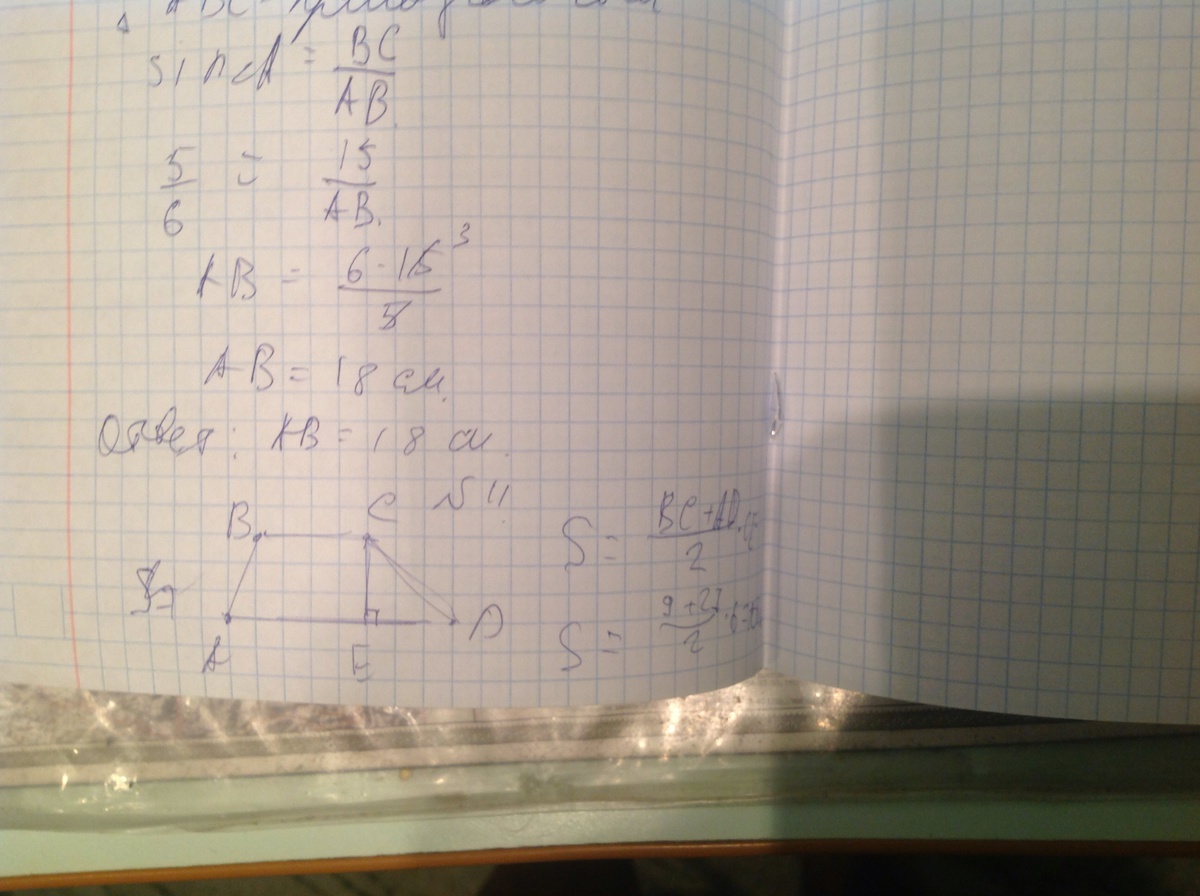 ABC
sin A = BC/AB
5/6 = 15/AB.
AB = 6·15/5 3
AB = 18 см.
Ответ: AB = 18 см.
№ 11
B C
A E D
S = BC+AD/2
S = 9+27/2 · 6 =